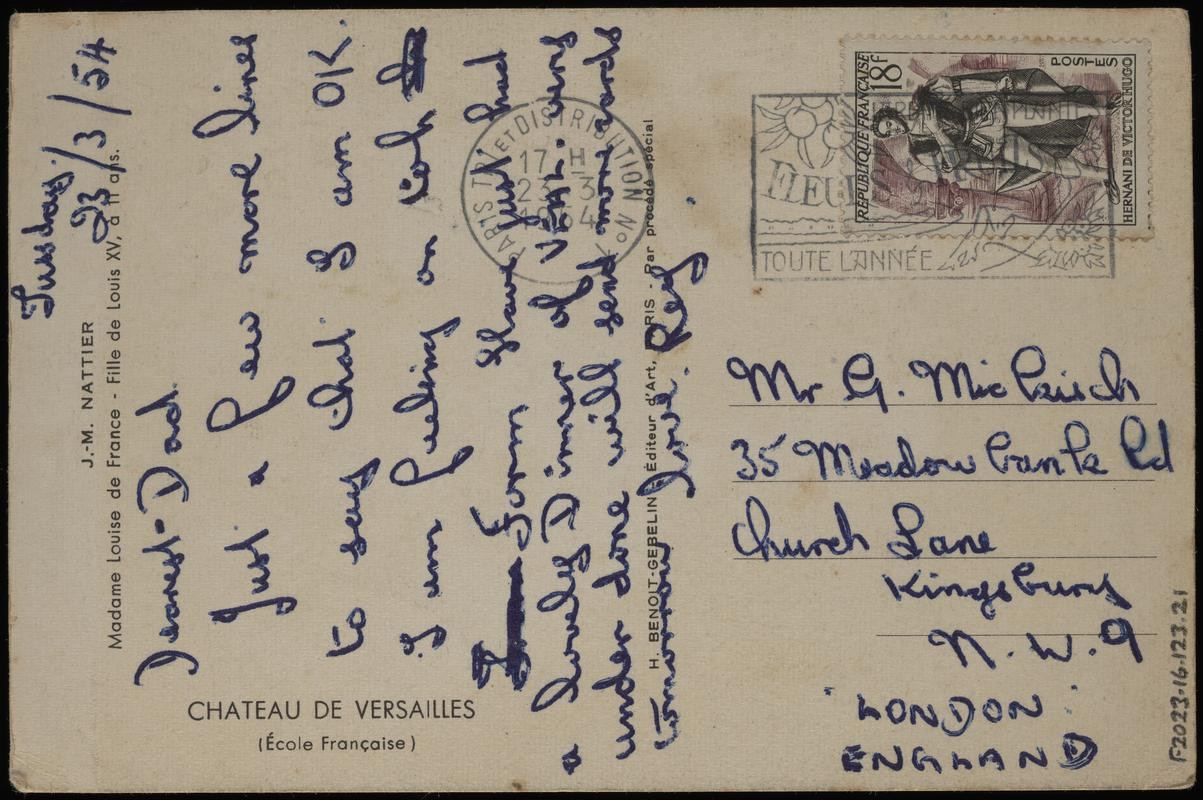 Tuesday
23/3/54
J.-M. NATTIER
Madame Louise de France - Fille de Louis XV, à 11 ans.
Dearest Dad
Just a few more lines
to say that I am OK.
I am feeling on
Form I have just had
a lovely Dinner of VEAL. very
under done will send more cards
tomorrow love. Reg
CHATEAU DE VERSAILLES
(École Française)
H. BENOIT-GEBELIN - Éditeur d'Art, PARIS - Par procédé spécial
PARIS TRI ET DISTRIBUTION No
17 H
23 - 3
FLEURS
TOUTE L'ANNÉE
RÉPUBLIQUE FRANÇAISE
18F
POSTES
HERNANI DE VICTOR HUGO
Mr G.
35 Meadow Bank Rd
Church Lane
Kingsbury
N.W.9
LONDON
ENGLAND
F2023.16.123.21